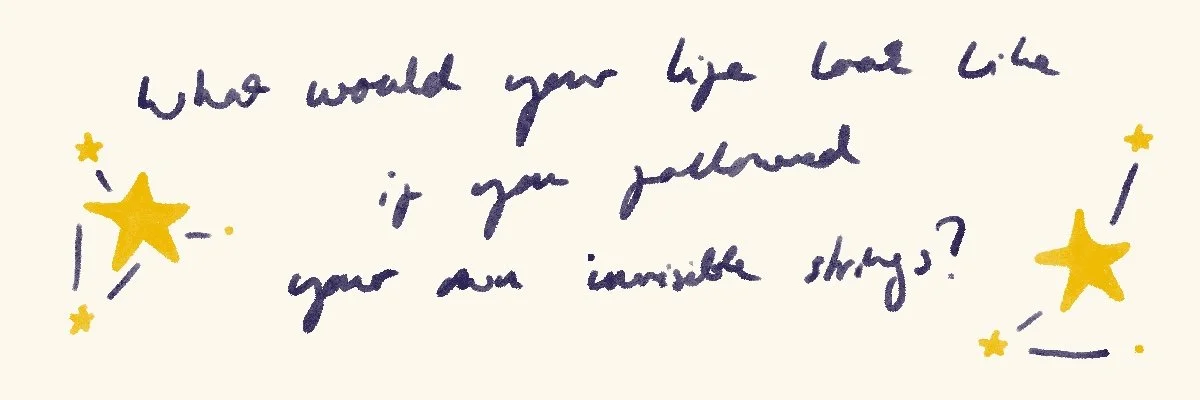 What would your life look like
if you followed
your own invisible strings?